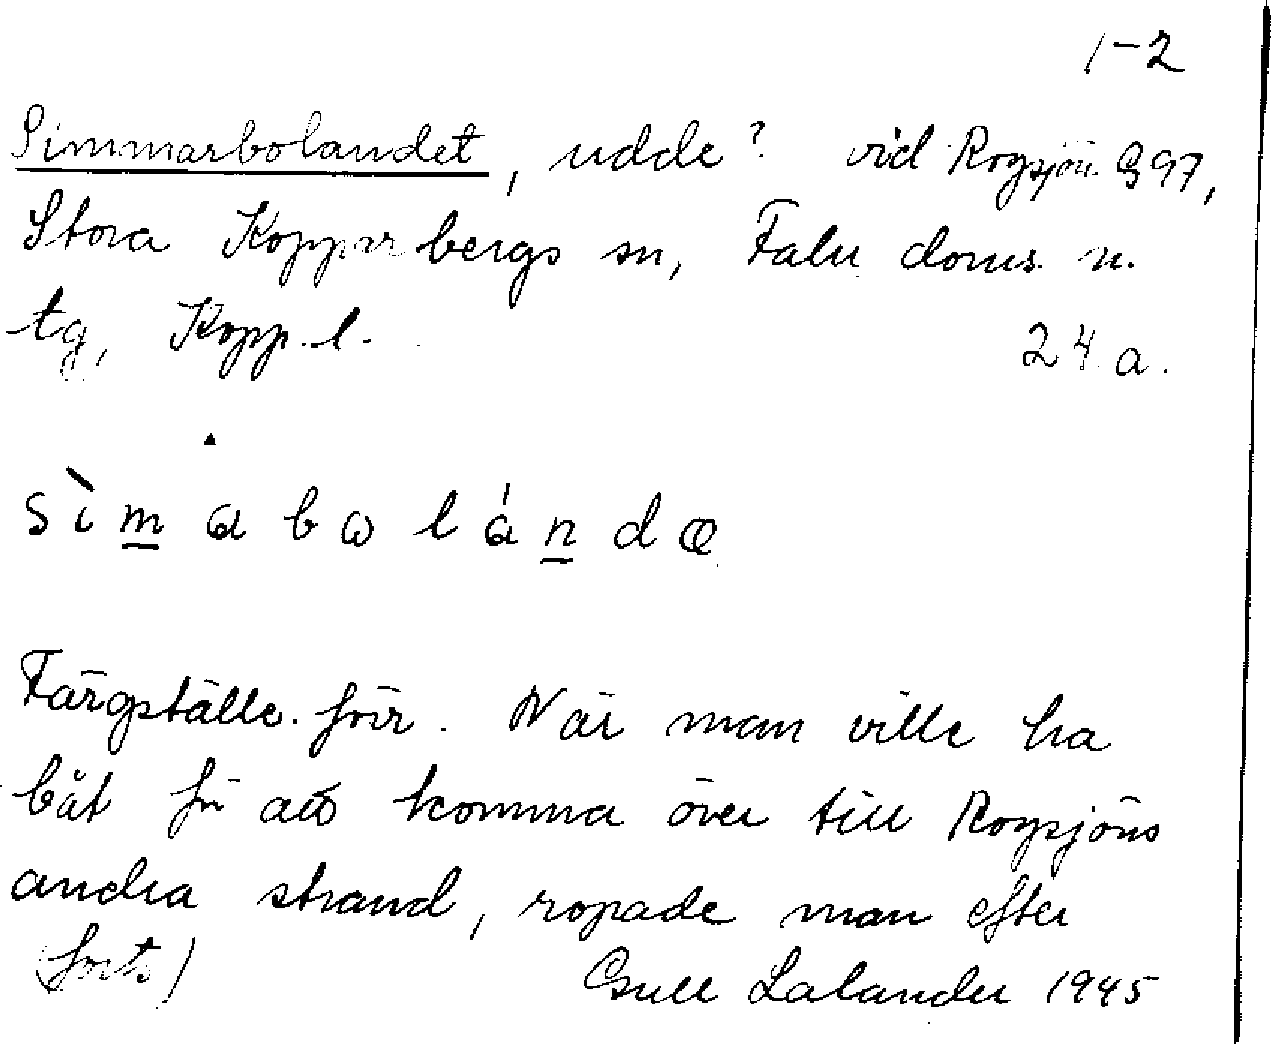 1-2
Simmarbolandet, udde? vid Rogsjön G 97,
Stora Kopparbergs sn, Falu doms. n.
tg, Kopp. l. 24 a.
sìmabolánda
Färgställe förr. När man ville ha
båt för att komma över till Rogsjöns
andra strand, ropade man efter
(forts) Gull Lalander 1945